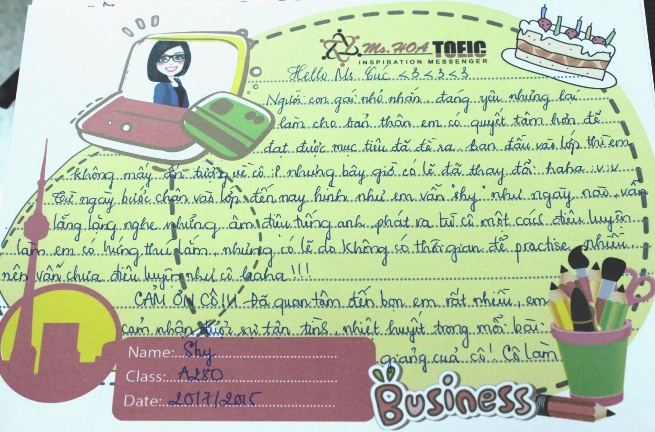 Ms.HOA TOEIC
INSPIRATION MESSENGER
Hello Ms. Cúc <3 <3 <3
Người con gái nhỏ nhắn, đáng yêu nhưng lại
làm cho bản thân em có quyết tâm hơn để
đạt được mục tiêu đã đề ra. Ban đầu vào lớp thì em
không mấy ấn tượng về cô :P nhưng bây giờ có lẽ đã thay đổi haha :v :v
Từ ngày bước chân vào lớp đến nay hình như em vẫn "shy" như ngày nào, vẫn
lắng lặng nghe những âm điệu tiếng anh phát ra từ cô một cách điêu luyện
làm em có hứng thú lắm, nhưng có lẽ do không có thời gian để practise nhiều
nên vẫn chưa điêu luyện như cô haha!!!
CẢM ƠN CÔ!!! Đã quan tâm đến bọn em rất nhiều, em
cảm nhận được sự tận tình, nhiệt huyết trong mỗi bài
giảng của cô! Cô làm
Name: Shy
Class: A280
Date: 20/7/2015
Business